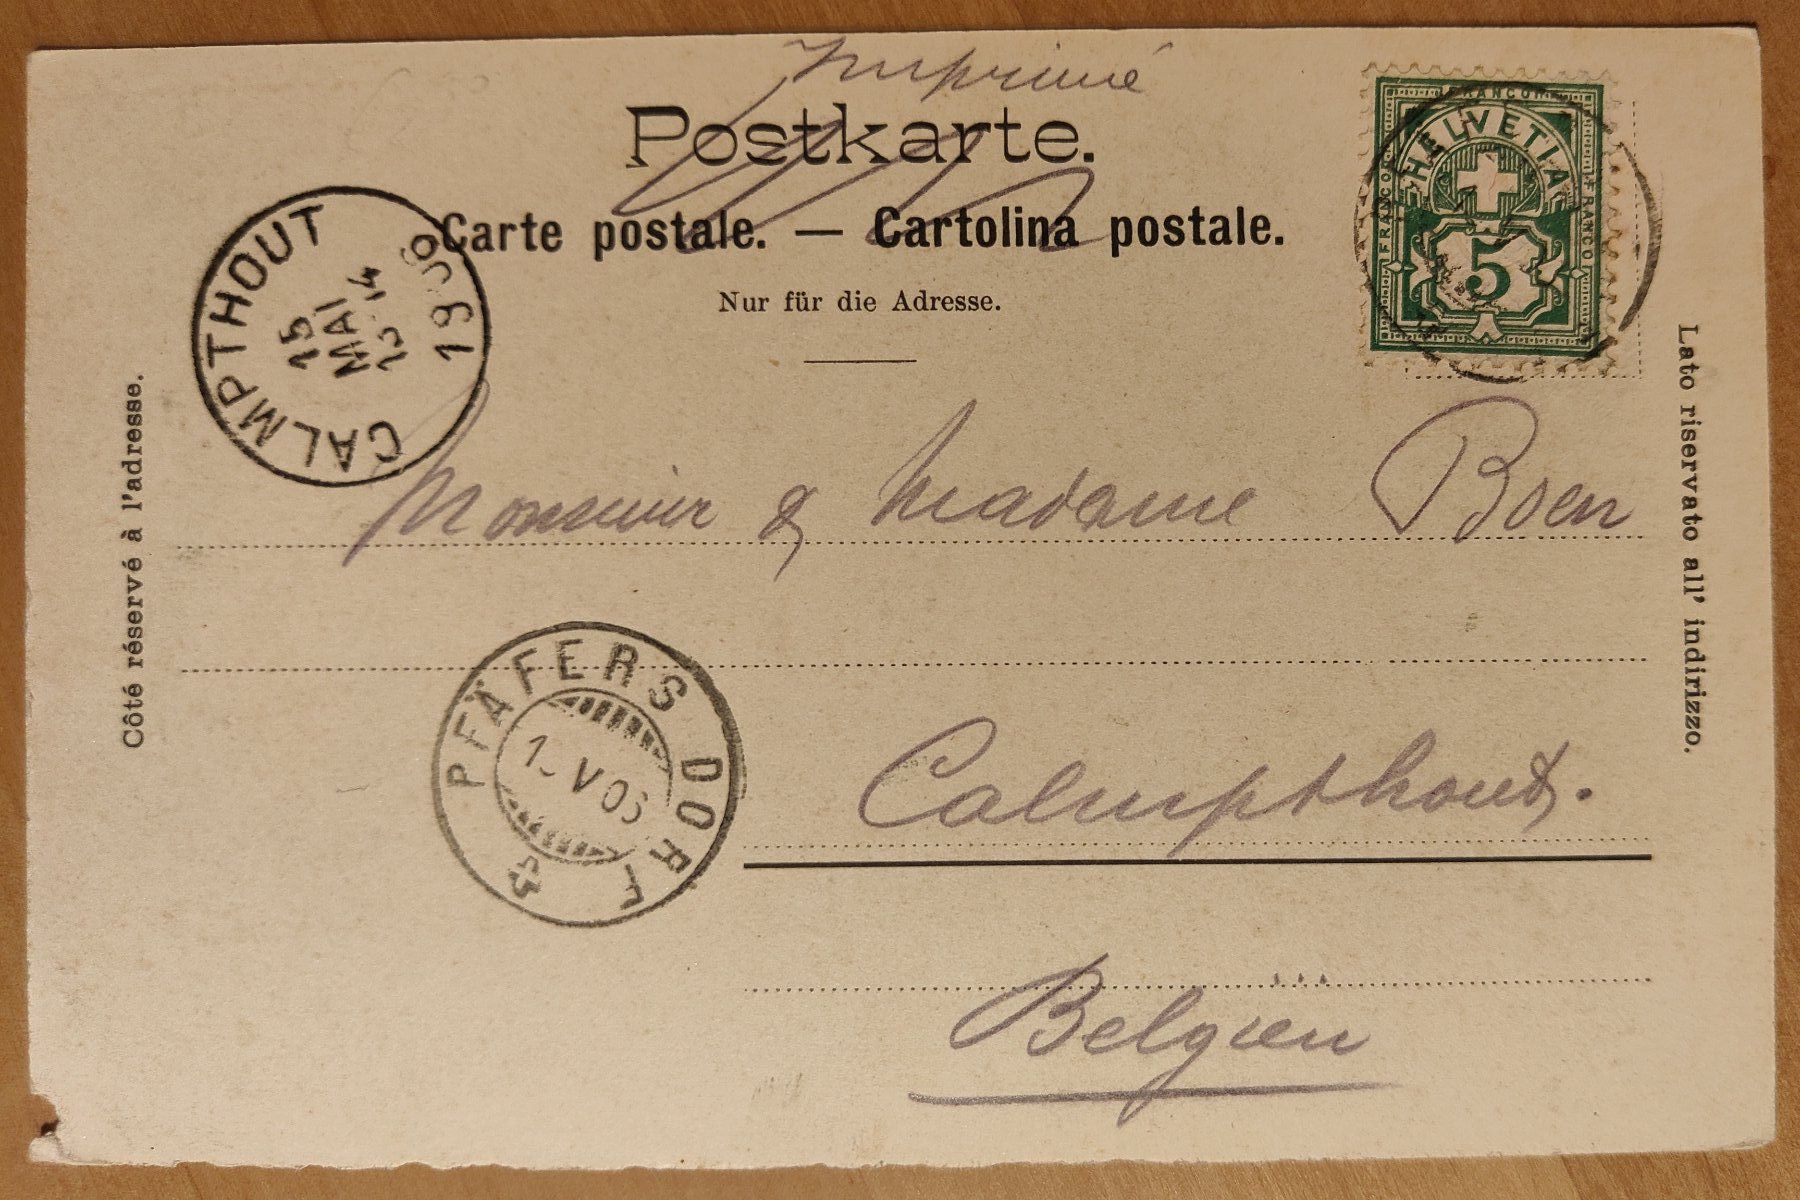 Imprimé
Postkarte.
Carte postale. — Cartolina postale.
Nur für die Adresse.
FRANCO
HELVETIA
FRANCO
FRANCO
5
CALMPTHOUT
15
MAI
13-14
1906
Côté réservé à l'adresse.
Lato riservato all' indirizzo.
Monsieur & Madame Boen
PFÄFERS DORF
V 06
Calmpthout.
Belgien